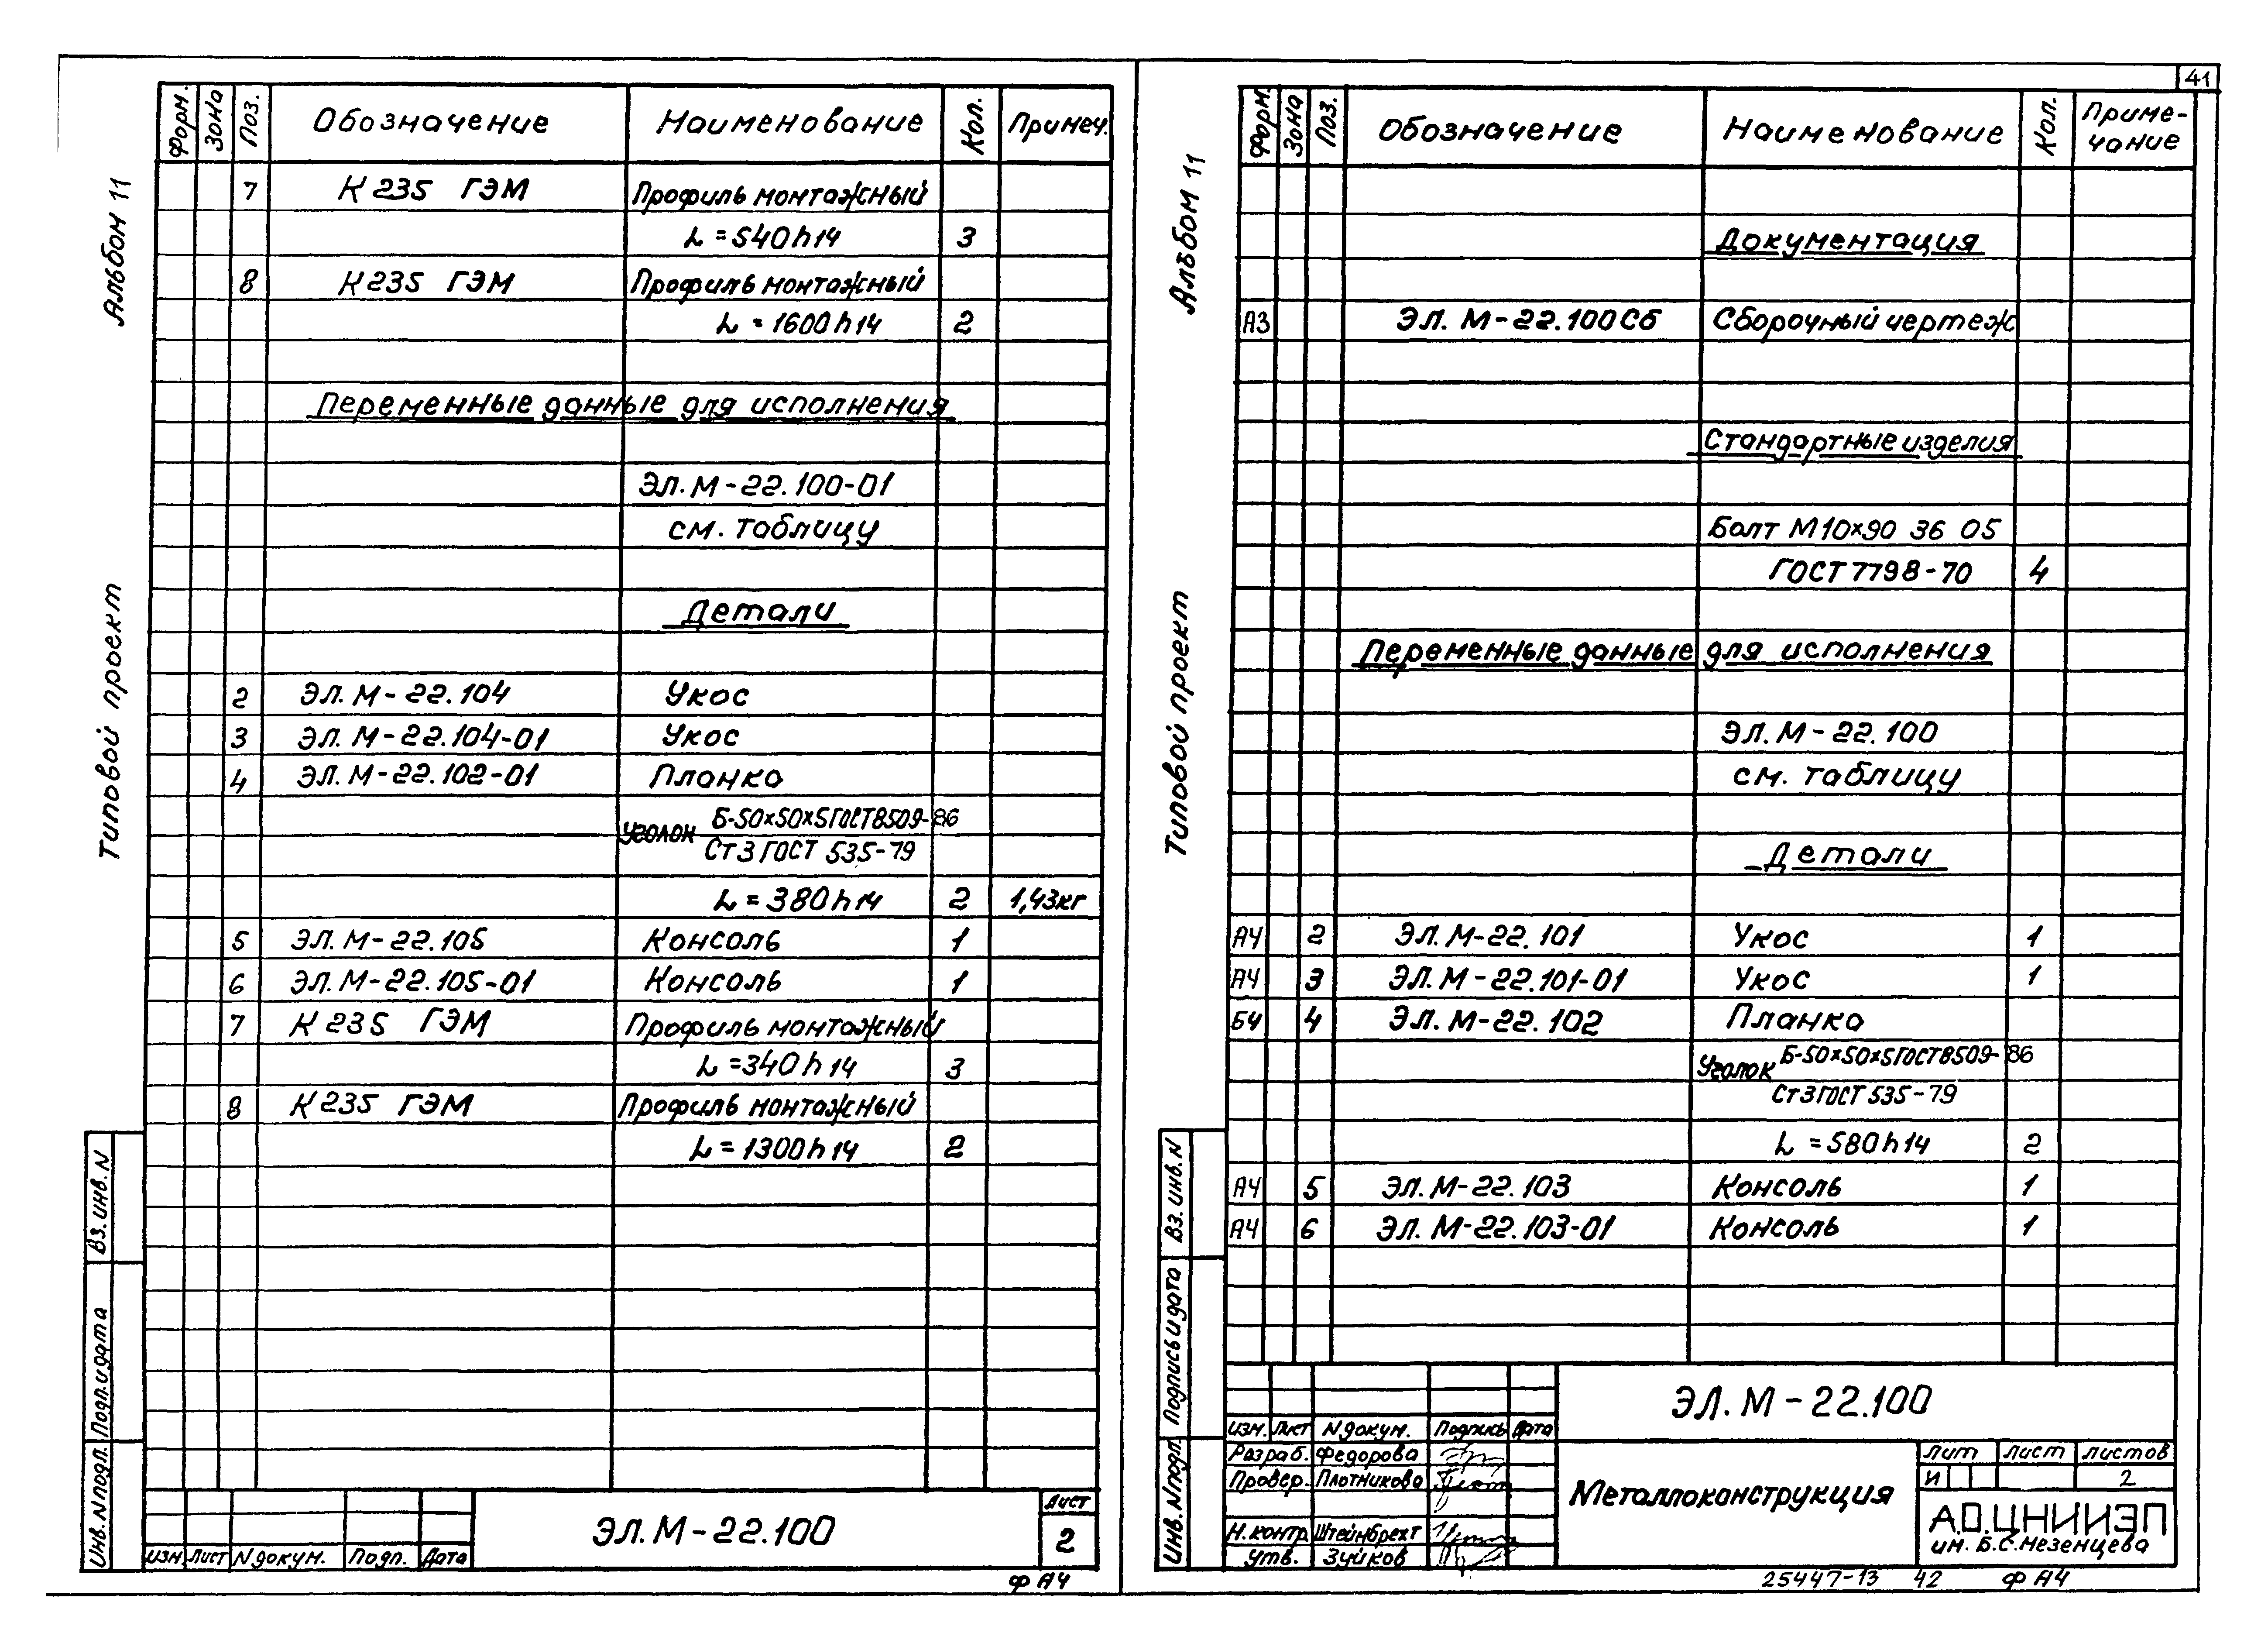 41
Альбом 11
Типовой проект
Форм. Зона Поз. Обозначение Наименование Кол. Примеч.
7 К 235 ГЭМ Профиль монтажный
L = 540 h 14 3
8 К 235 ГЭМ Профиль монтажный
L = 1600 h 14 2
Переменные данные для исполнения
ЭЛ. М - 22. 100-01
см. таблицу
Детали
2 ЭЛ. М - 22. 104 Укос
3 ЭЛ. М - 22. 104-01 Укос
4 ЭЛ. М - 22. 102-01 Планка
Б-50×50×5 ГОСТ 8509-86
Уголок
Ст 3 ГОСТ 535-79
L = 380 h 14 2 1,43кг
5 ЭЛ. М - 22. 105 Консоль 1
6 ЭЛ. М - 22. 105-01 Консоль 1
7 К 235 ГЭМ Профиль монтажный
L = 340 h 14 3
8 К 235 ГЭМ Профиль монтажный
L = 1300 h 14 2
Вз. инв. N
Подп. и дата
Инв. N подп.
Изм. Лист N докум. Подп. Дата
ЭЛ. М - 22.100
Лист
2
Ф А4
Альбом 11
Типовой проект
Форм. Зона Поз. Обозначение Наименование Кол. Приме-
чание
Документация
А3 ЭЛ. М - 22. 100 Сб Сборочный чертеж
Стандартные изделия
Болт М10×90 36 05
ГОСТ 7798-70 4
Переменные данные для исполнения
ЭЛ. М - 22. 100
см. таблицу
Детали
А4 2 ЭЛ. М - 22. 101 Укос 1
А4 3 ЭЛ. М - 22. 101-01 Укос 1
БЧ 4 ЭЛ. М - 22. 102 Планка
Б-50×50×5 ГОСТ 8509-86
Уголок
Ст 3 ГОСТ 535-79
L = 580 h 14 2
А4 5 ЭЛ. М - 22. 103 Консоль 1
А4 6 ЭЛ. М - 22. 103-01 Консоль 1
Вз. инв. N
Подпись и дата
Инв. N подп.
ЭЛ. М - 22.100
Изм. Лист N докум. Подпись Дата
Разраб. Федорова
Провер. Плотникова
Н. контр. Штейнбрехт
Утв. Зуйков
Металлоконструкция
Лит Лист Листов
И 2
А.О. ЦНИИЭП
им. Б.С. Мезенцева
25447-13 42 Ф А4